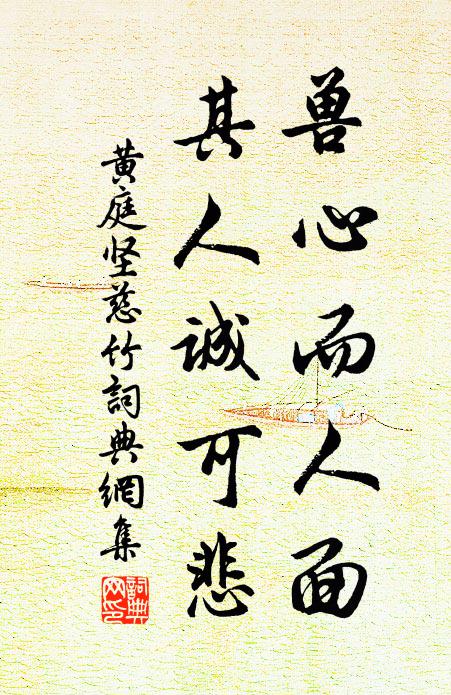 兽心而人面
其人诚可悲
黄庭坚慈竹詞典網集
詞典
网印